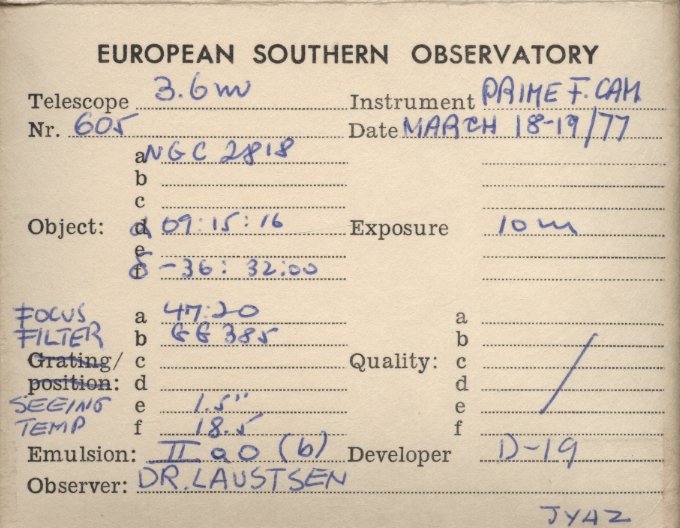 EUROPEAN SOUTHERN OBSERVATORY
Telescope 3.6m Instrument PRIME F. CAM
Nr. 605 Date MARCH 18-19/77
a NGC 2818
b
c
Object: d α 09:15:16 Exposure 10m
e
f δ -36: 32:00
FOCUS a 47:20 a
FILTER b GG 385 b
Grating/ c Quality: c
position: d d
SEEING e 1.5" e
TEMP f 18.5 f
Emulsion: IIa0 (b) Developer D-19
Observer: DR. LAUSTSEN
JYAZ